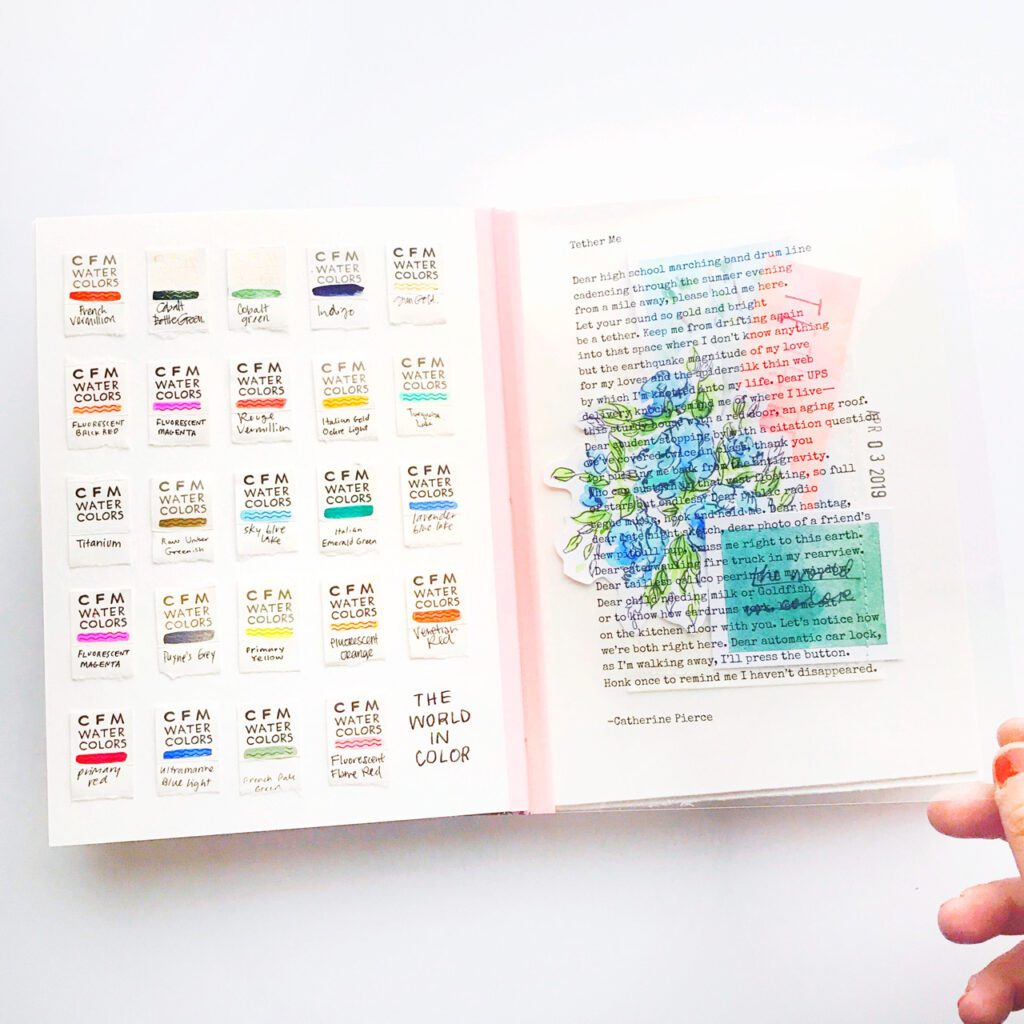 CFM
WATER
COLORS
French
Vermillion
Cobalt
Bottle Green
Cobalt
green
CFM
WATER
COLORS
Indigo
CFM
WATER
COLORS
Gold
CFM
WATER
COLORS
FLUORESCENT
BRICK RED
CFM
WATER
COLORS
FLUORESCENT
MAGENTA
CFM
WATER
COLORS
Rouge
Vermillion
CFM
WATER
COLORS
Italian Gold
Ochre Light
CFM
WATER
COLORS
Turquoise
Lake
CFM
WATER
COLORS
Titanium
CFM
WATER
COLORS
Raw Umber
Greenish
CFM
WATER
COLORS
sky blue
Lake
CFM
WATER
COLORS
Italian
Emerald Green
CFM
WATER
COLORS
lavender
blue lake
CFM
WATER
COLORS
FLUORESCENT
MAGENTA
CFM
WATER
COLORS
Payne's Grey
CFM
WATER
COLORS
Primary
Yellow
CFM
WATER
COLORS
Fluorescent
Orange
CFM
WATER
COLORS
Venetian
Red
CFM
WATER
COLORS
Primary
red
CFM
WATER
COLORS
Ultramarine
Blue Light
CFM
WATER
COLORS
French Pale
Green
CFM
WATER
COLORS
Fluorescent
Flame Red
THE
WORLD
IN
COLOR
Tether Me
Dear high school marching band drum line
cadencing through the summer evening
from a mile away, please hold me here.
Let your sound so gold and bright
be a tether. Keep me from drifting again
into that space where I don't know anything
but the earthquake magnitude of my love
for my loves and the spidersilk thin web
by which I'm knotted into my life. Dear UPS
delivery knock, remind me of where I live—
this sturdy house with a red door, an aging roof.
Dear student stopping by with a citation question
we've covered twice in class, thank you
for pulling me back from the antigravity.
Who can sustain all that vast floating, so full
of stars but endless? Dear public radio
segue music, hook and hold me. Dear hashtag,
dear late night sketch, dear photo of a friend's
new pitbull pup, truss me right to this earth.
Dear caterwauling fire truck in my rearview.
Dear tailless calico peering in my window.
Dear child needing milk or Goldfish
or to know how eardrums work, come sit
on the kitchen floor with you. Let's notice how
we're both right here. Dear automatic car lock,
as I'm walking away, I'll press the button.
Honk once to remind me I haven't disappeared.
—Catherine Pierce
APR 03 2019
the world
in color